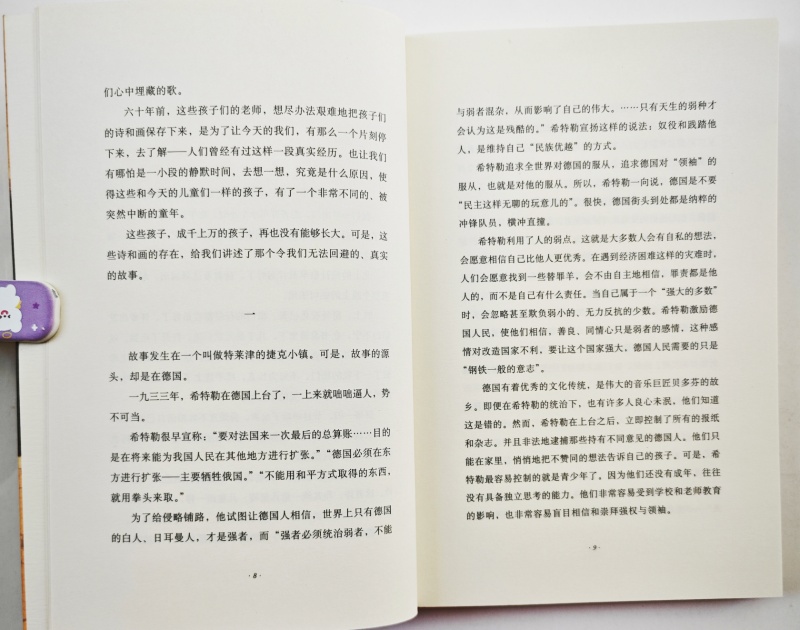 们心中埋藏的歌。
六十年前，这些孩子们的老师，想尽办法艰难地把孩子们
的诗和画保存下来，是为了让今天的我们，有那么一个片刻停
下来，去了解——人们曾经有过这样一段真实经历。也让我们
有哪怕是一小段的静默时间，去想一想，究竟是什么原因，使
得这些和今天的儿童们一样的孩子，有了一个非常不同的、被
突然中断的童年。
这些孩子，成千上万的孩子，再也没有能够长大。可是，这
些诗和画的存在，给我们讲述了那个令我们无法回避的、真实
的故事。
一
故事发生在一个叫做特莱津的捷克小镇。可是，故事的源
头，却是在德国。
一九三三年，希特勒在德国上台了，一上来就咄咄逼人，势
不可当。
希特勒很早宣称：“要对法国来一次最后的总算账……目的
是在将来能为我国人民在其他地方进行扩张。”“德国必须在东
方进行扩张——主要牺牲俄国。”“不能用和平方式取得的东西，
就用拳头来取。”
为了给侵略铺路，他试图让德国人相信，世界上只有德国
的白人、日耳曼人，才是强者，而“强者必须统治弱者，不能
·8·
与弱者混杂，从而影响了自己的伟大。……只有天生的弱种才
会认为这是残酷的。”希特勒宣扬这样的说法：奴役和践踏他
人，是维持自己“民族优越”的方式。
希特勒追求全世界对德国的服从，追求德国对“领袖”的
服从，也就是对他的服从。所以，希特勒一向说，德国是不要
“民主这样无聊的玩意儿的”。很快，德国街头到处都是纳粹的
冲锋队员，横冲直撞。
希特勒利用了人的弱点。这就是大多数人会有自私的想法，
会愿意相信自己比他人更优秀。在遇到经济困难这样的灾难时，
人们会愿意找到一些替罪羊，会不由自主地相信，罪责都是他
人的，而不是自己有什么责任。当自己属于一个“强大的多数”
时，会忽略甚至欺负弱小的、无力反抗的少数。希特勒激励德
国人民，使他们相信，善良、同情心只是弱者的感情，这种感
情对改造国家不利，要让这个国家强大，德国人民需要的只是
“钢铁一般的意志”。
德国有着优秀的文化传统，是伟大的音乐巨匠贝多芬的故
乡。即便在希特勒的统治下，也有许多人良心未泯，他们知道
这是错的。然而，希特勒在上台之后，立即控制了所有的报纸
和杂志。并且非法地逮捕那些持有不同意见的德国人。他们只
能在家里，悄悄地把不赞同的想法告诉自己的孩子。可是，希
特勒最容易控制的就是青少年了。因为他们还没有成年，往往
没有具备独立思考的能力。他们非常容易受到学校和老师教育
的影响，也非常容易盲目相信和崇拜强权与领袖。
·9·